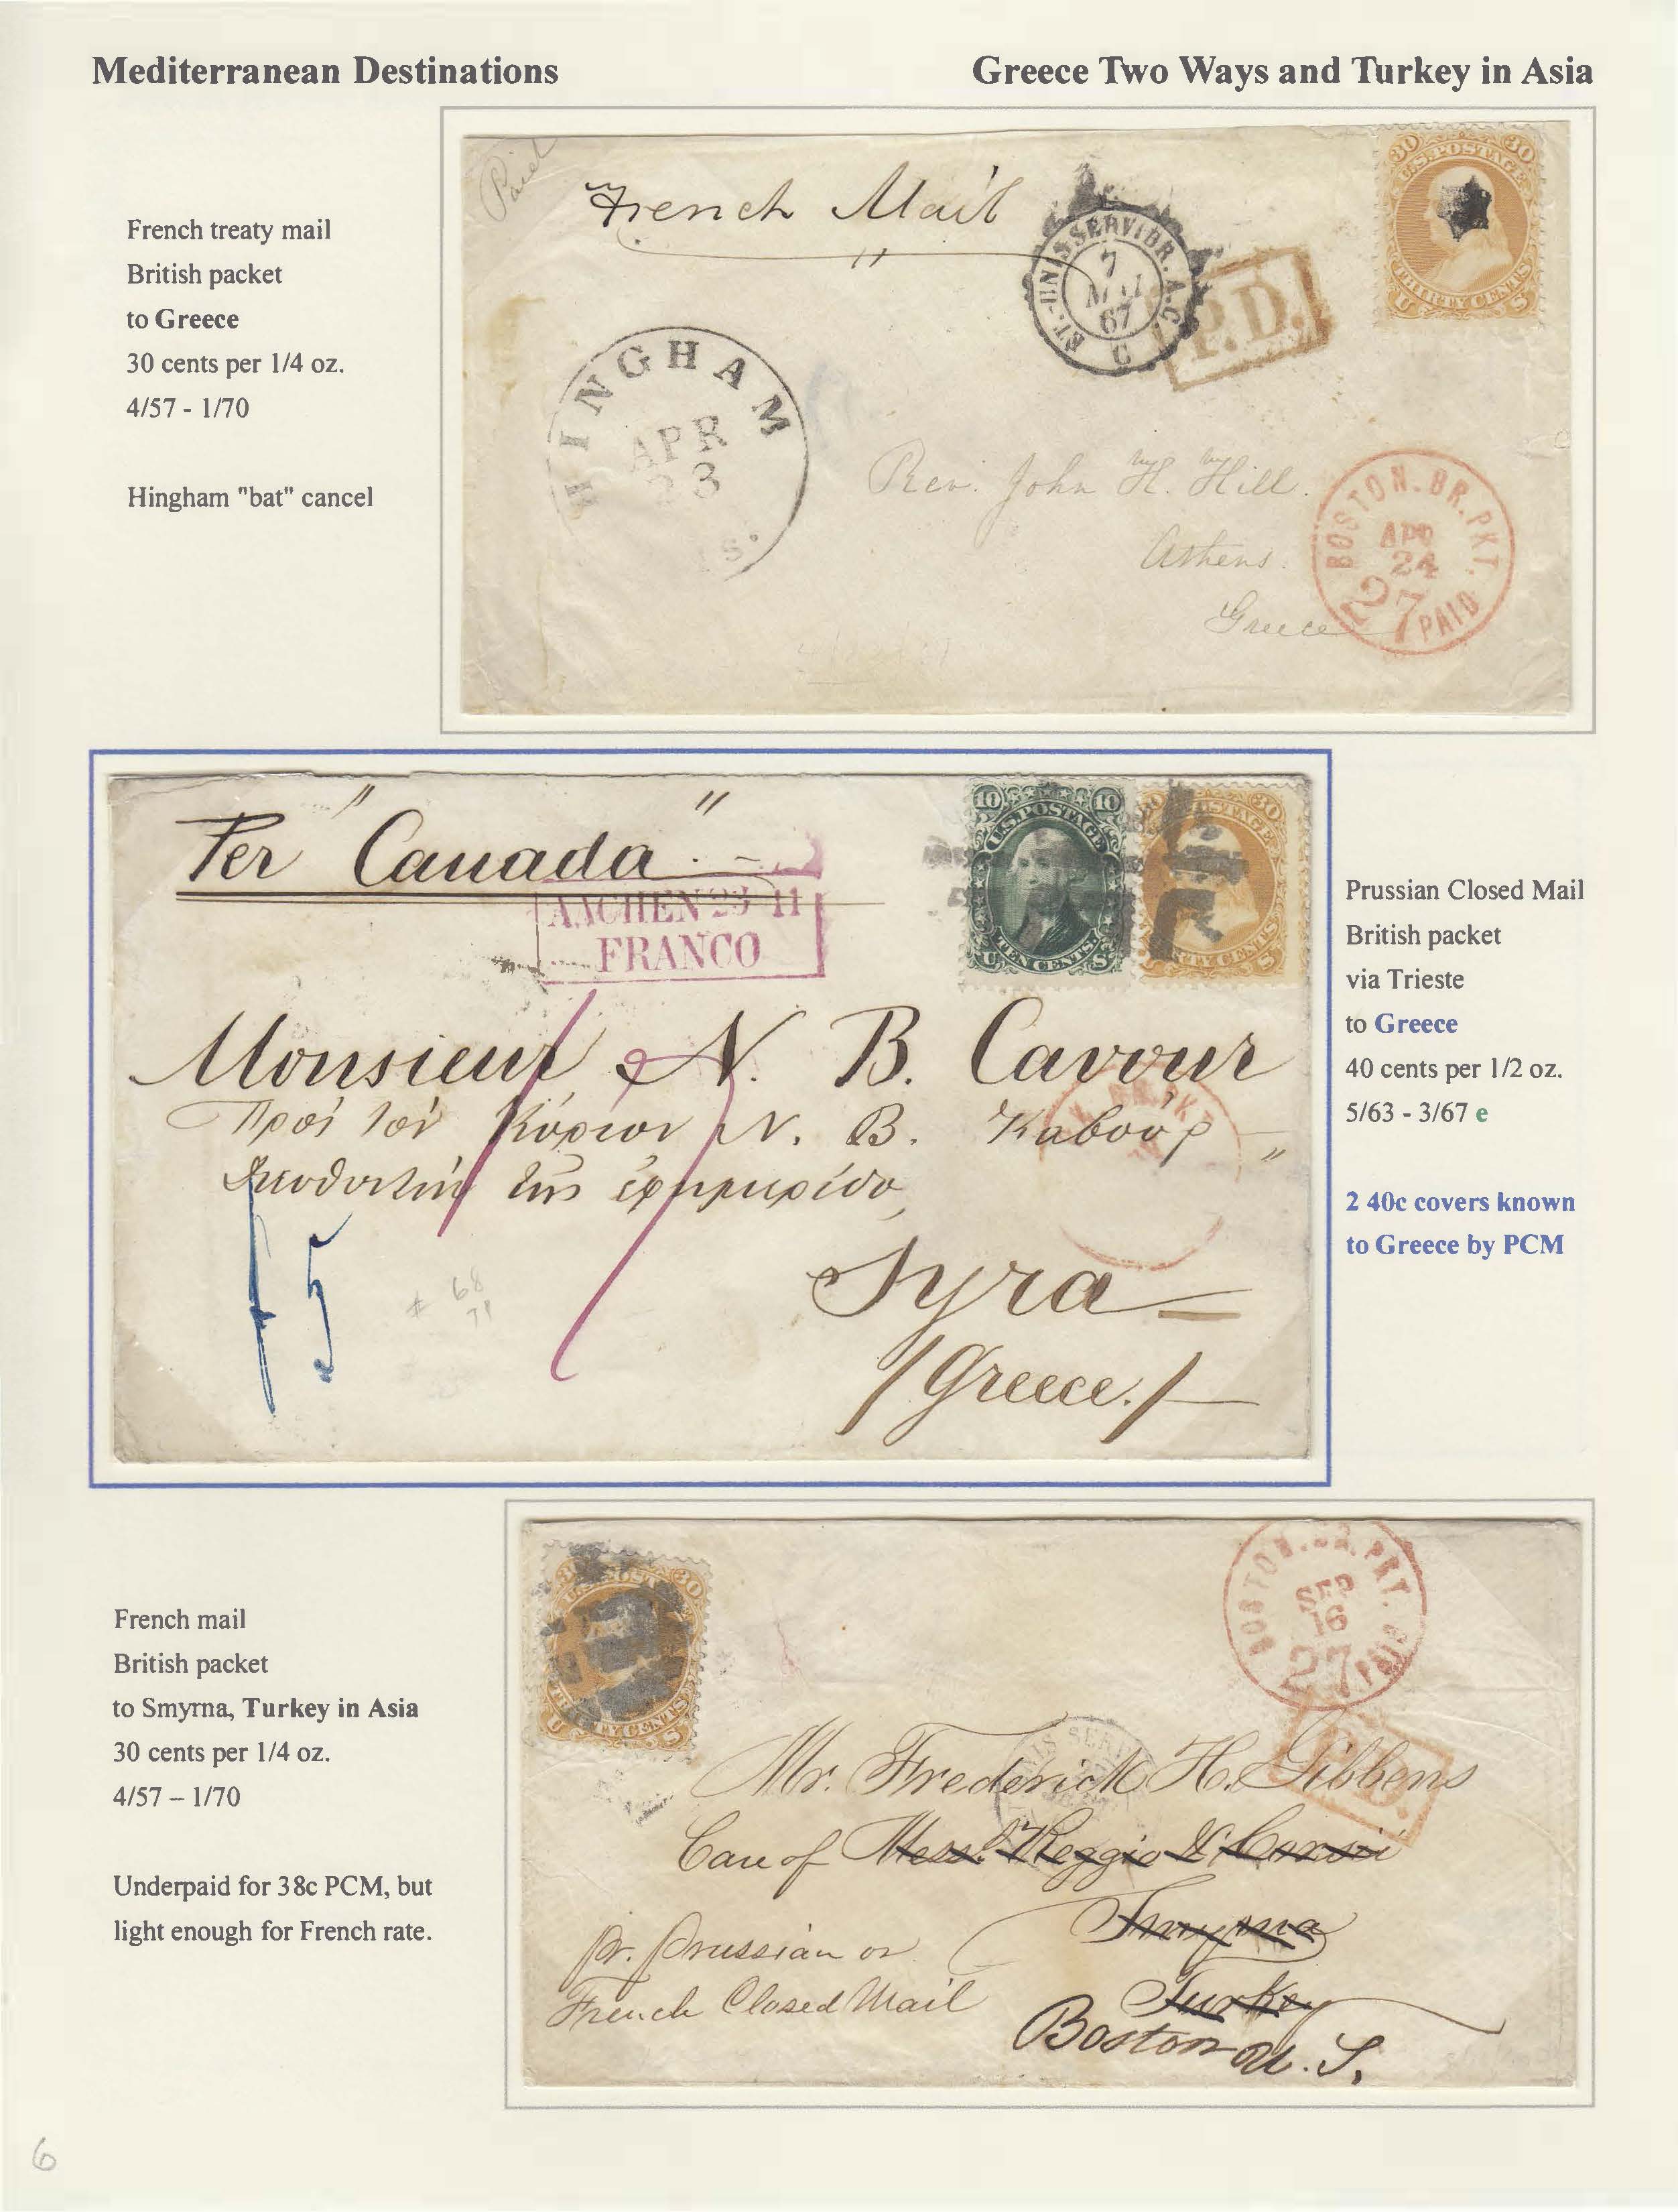 Mediterranean Destinations
Greece Two Ways and Turkey in Asia
French treaty mail
British packet
to Greece
30 cents per 1/4 oz.
4/57 - 1/70
Hingham "bat" cancel
Paid
French Mail
ET.-UNIS SERV. BR. A.C.
7
MAI
67
C
P.D.
30 30
U.S. POSTAGE
THIRTY CENTS
U S
HINGHAM
APR
23
S.
Rev. John H. Hill.
Athens
Greece
BOSTON. BR. PKT.
APR
24
27
PAID
Per "Canada"
AACHEN 23 11
FRANCO
10 10
U.S. POSTAGE
TEN CENTS.
U S
30
U.S. POSTAGE
THIRTY CENTS
S
Monsieur N. B. Cavour
Πρός τόν Κύριον N. B. Καβούρ
της
Syra
/Greece./
f 5
# 68
71
Prussian Closed Mail
British packet
via Trieste
to Greece
40 cents per 1/2 oz.
5/63 - 3/67 e
2 40c covers known
to Greece by PCM
French mail
British packet
to Smyrna, Turkey in Asia
30 cents per 1/4 oz.
4/57 – 1/70
Underpaid for 38c PCM, but
light enough for French rate.
30 30
U.S. POST
THIRTY CENTS
U S
BOSTON. BR. PKT.
SEP
16
27
PAID
P.D.
Mr. Frederick H. Gibbens
Care of Mess. Reggio &
Smyrna
Turkey
pr. prussian or
French Closed Mail
Boston U. S.
6